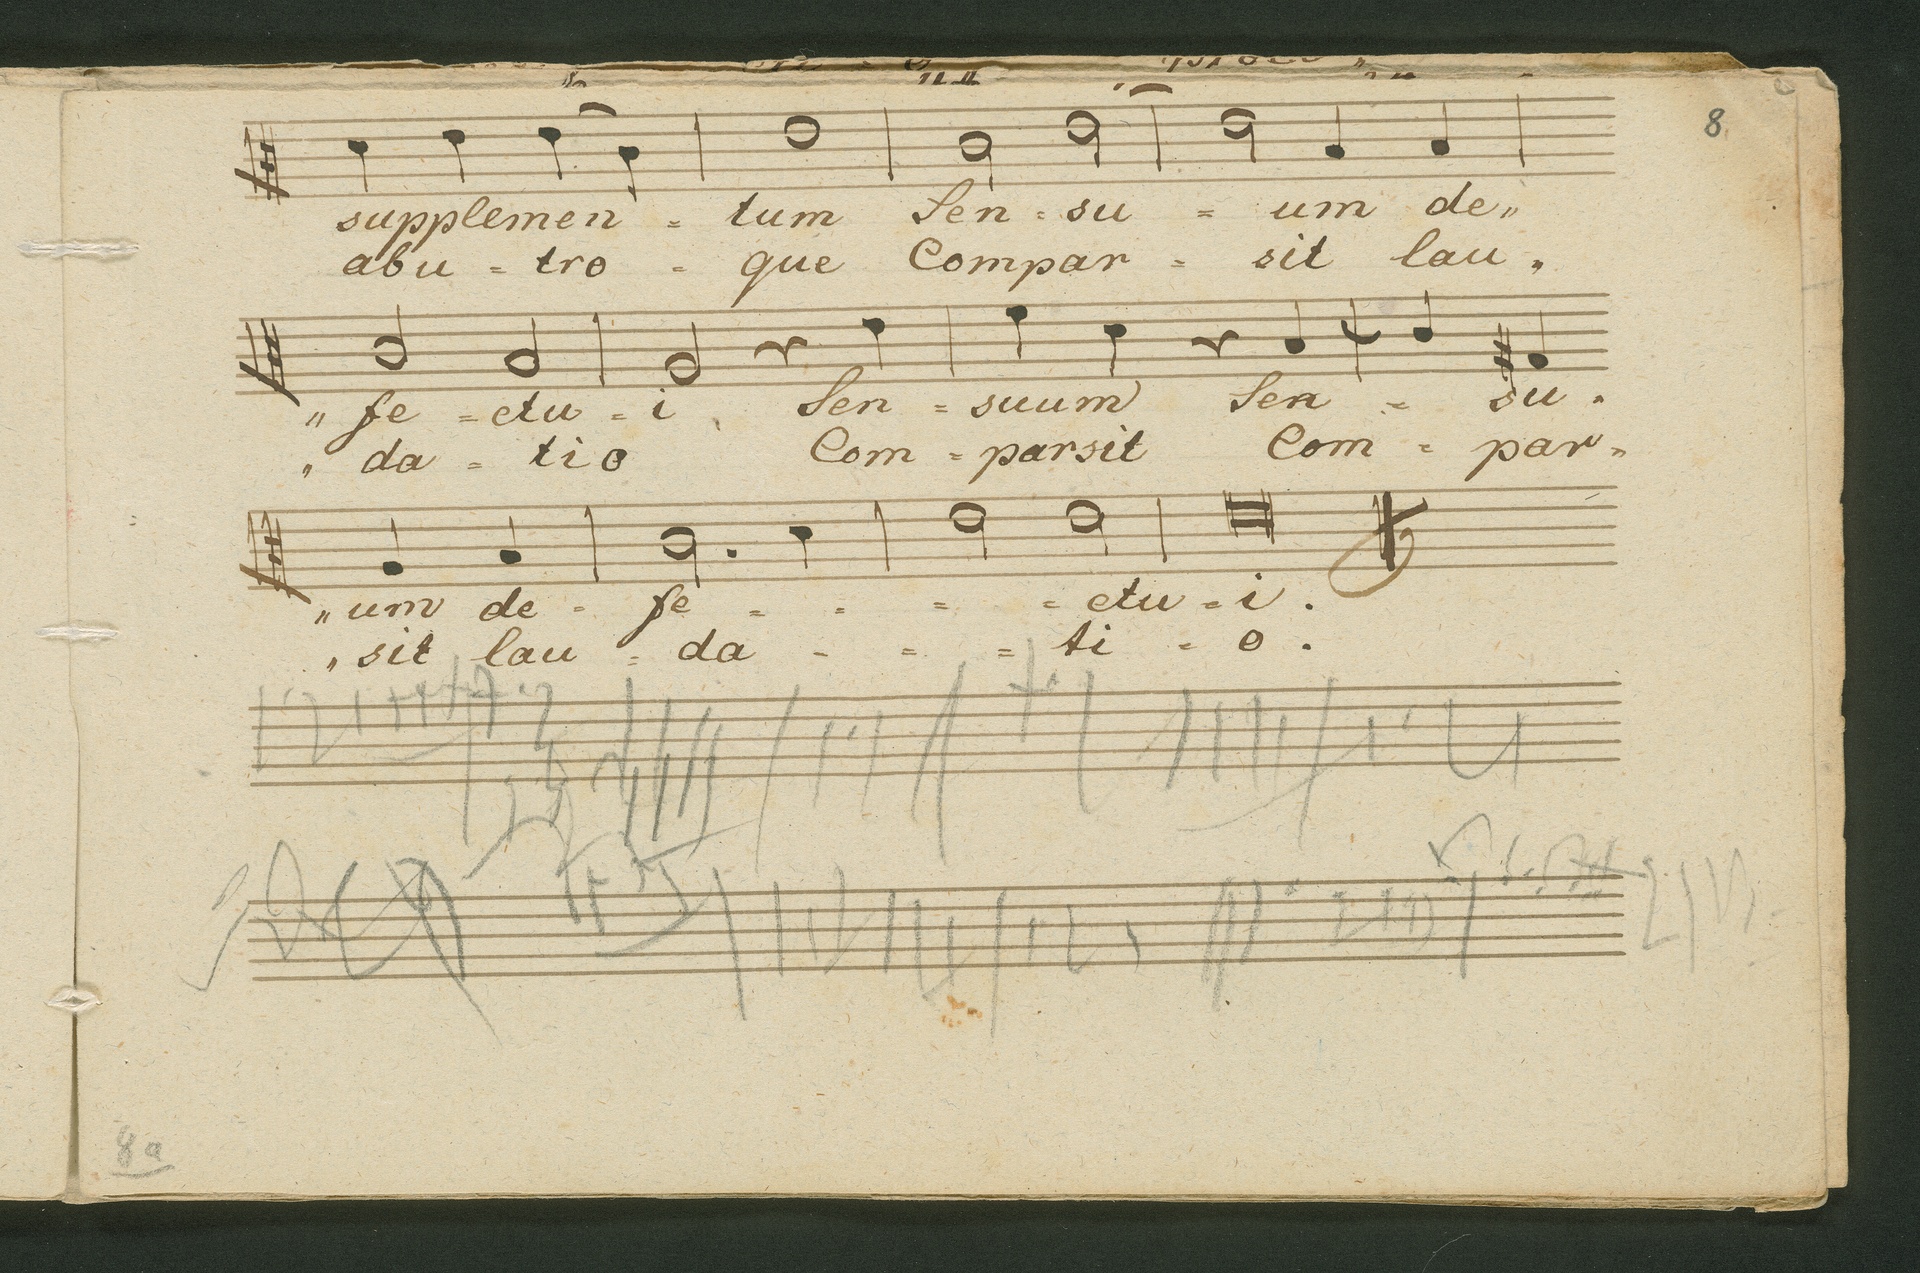 8
supplemen = tum Sen = su = um de„
abu = tro = que Compar = sit lau„
„fe = ctu = i. Sen = suum Sen = su.
„da = tio Com = parsit Com = par=
„um de = fe = = = = ctu = i.
„sit lau = da = = = ti = o.
8a